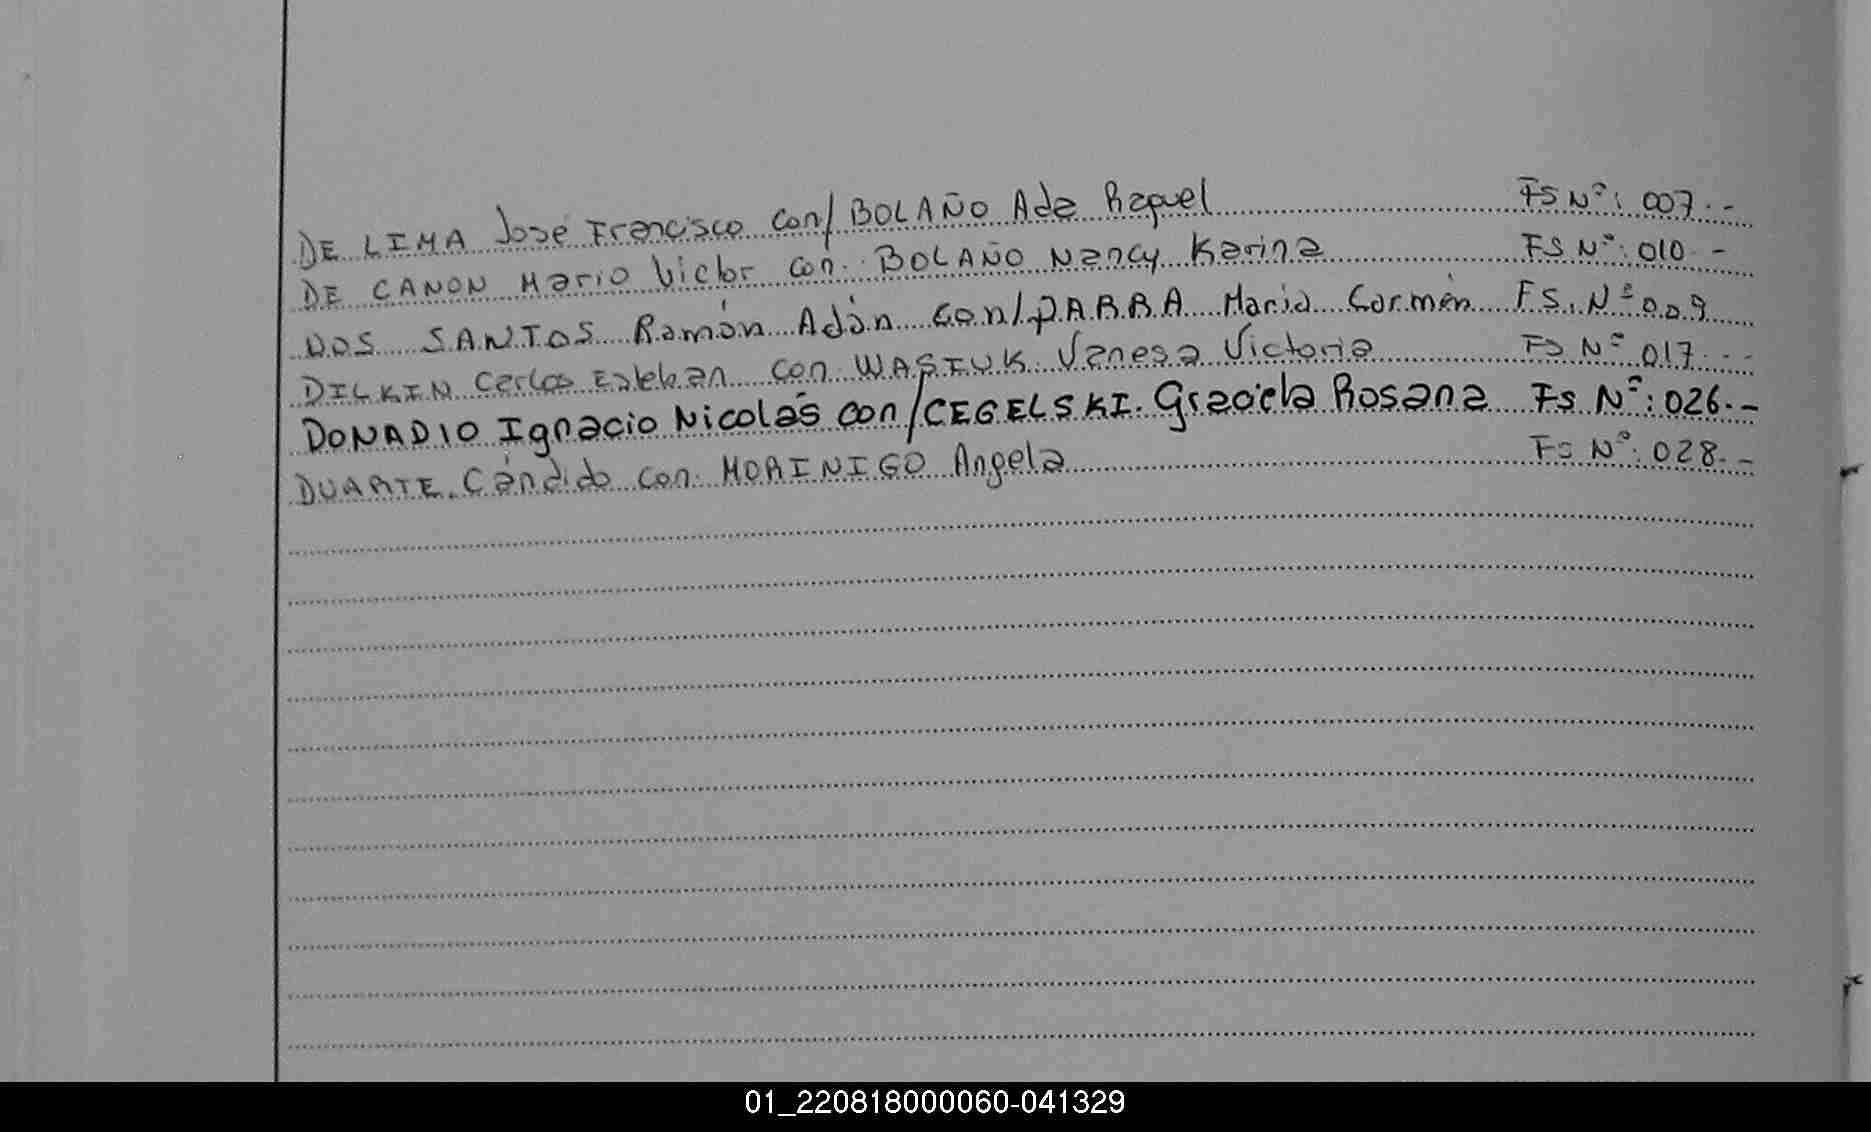 DE LIMA José Francisco con/ BOLAÑO Ada Raquel FS Nº: 007.-
DE CANON Mario Victor con. BOLAÑO Nancy Karina FS Nº: 010.-
DOS SANTOS Ramón Adán con/ PARRA Maria Carmen FS. Nº 009
DILKIN Carlos Esteban con. WASIUK Vanesa Victoria FS Nº 017.-
DONADIO Ignacio Nicolás con/ CEGELSKI. Graciela Rosana Fs Nº: 026.-
DUARTE. Cándido con. MORINIGO Angela Fs Nº: 028.-
01_220818000060-041329